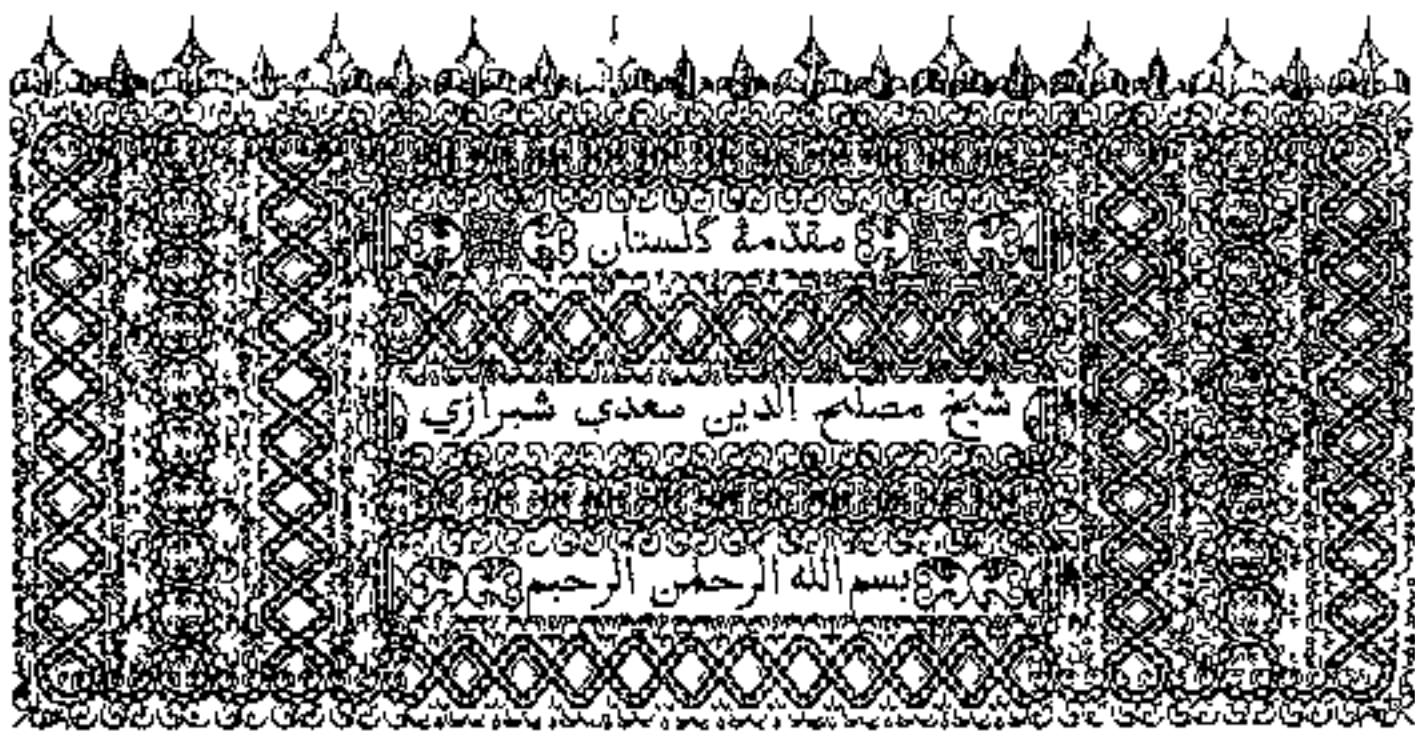 مقدّمهٔ گلستان
شیخ مصلح الدین سعدی شیرازي
بسم الله الرحمٰن الرحیم